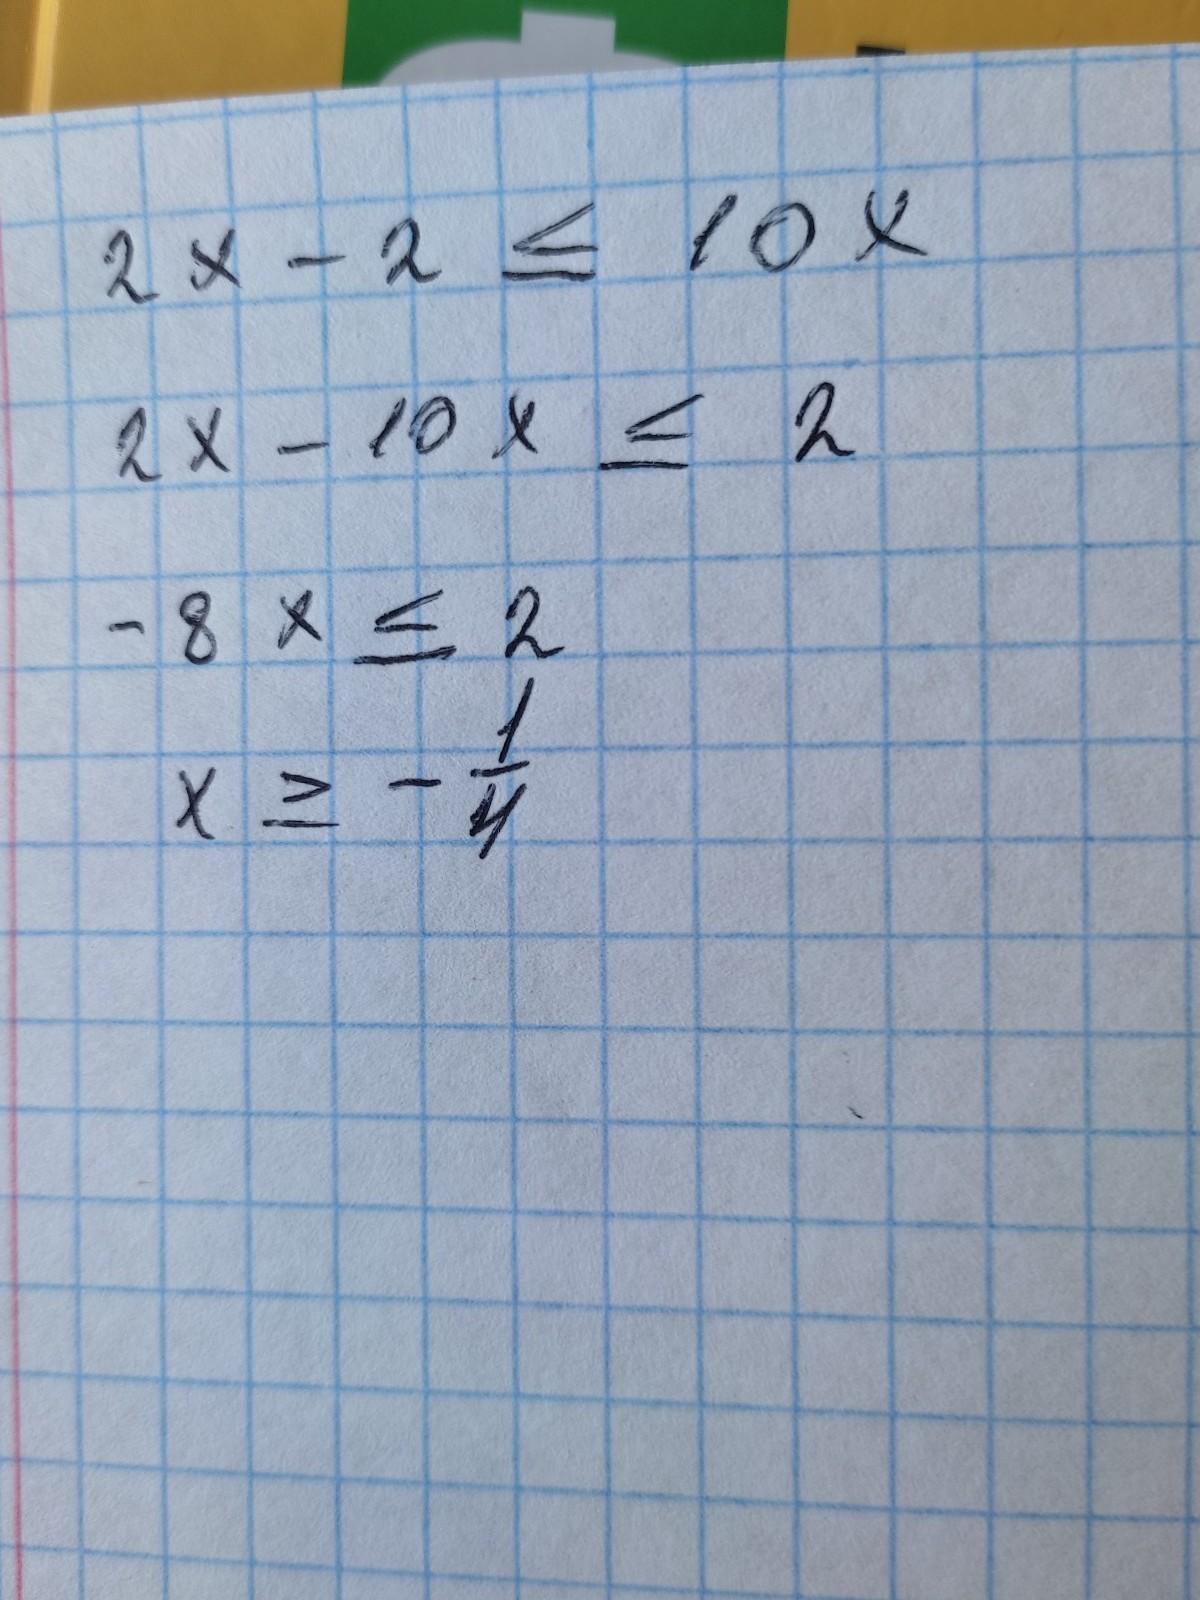 2x - 2 ≤ 10x
2x - 10x ≤ 2
-8x ≤ 2
x ≥ - 1/4